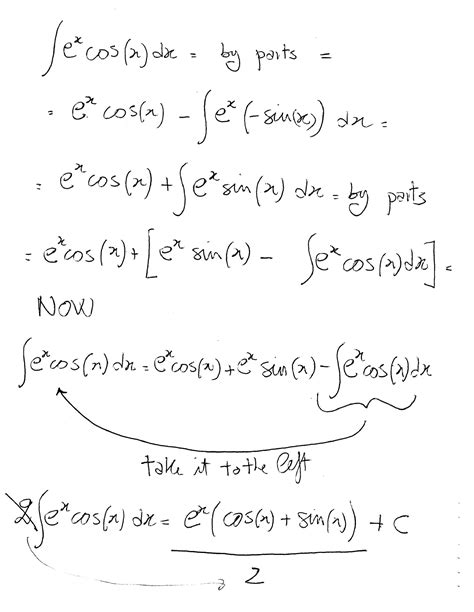 ∫e^x cos(x) dx = by parts =
= e^x cos(x) - ∫e^x (-sin(x)) dx =
= e^x cos(x) + ∫e^x sin(x) dx = by parts
= e^x cos(x) + [e^x sin(x) - ∫e^x cos(x) dx] =
NOW
∫e^x cos(x) dx = e^x cos(x) + e^x sin(x) - ∫e^x cos(x) dx
take it to the left
2∫e^x cos(x) dx = e^x (cos(x) + sin(x)) + c
2